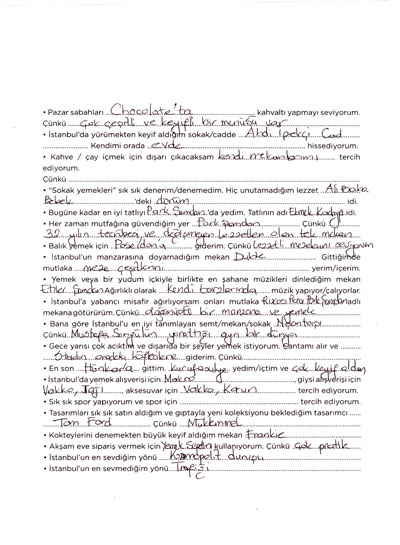 • Pazar sabahları Chocolate'ta kahvaltı yapmayı seviyorum.
Çünkü çok çeşitli ve keyifli bir menüsü var
• İstanbul'da yürümekten keyif aldığım sokak/cadde Abdi İpekçi Cad
Kendimi orada evde hissediyorum.
• Kahve / çay içmek için dışarı çıkacaksam kendi mekanlarımı tercih
ediyorum.
Çünkü
• "Sokak yemekleri" sık sık denerim/denemedim. Hiç unutamadığım lezzet Ali Baba
Bebek 'deki dürüm idi.
• Bugüne kadar en iyi tatlıyı Park Şamdan'da yedim. Tatlının adı Ekmek Kadayıfıdi.
• Her zaman mutfağına güvendiğim yer Park Şamdan Çünkü
32 yılın tecrübesi ve değişmeyen lezzetleri olan tek mekan
• Balık yemek için Poseidon'a giderim. Çünkü Lezzetli mezelerini seviyorum
• İstanbul'un manzarasına doyamadığım mekan Gittiğimde
mutlaka meze çeşitlerini yerim/içerim.
• Yemek veya bir yudum içkiyle birlikte en sahane müzikleri dinlediğim mekan
Etiler Şamdan Ağırlıklı olarak kendi tarzlarında müzik yapıyor/çalıyorlar.
• İstanbul'a yabancı misafir ağırlıyorsam onları mutlaka Rixos Pera Park Şamdan adlı
mekana götürürüm. Çünkü olağanüstü bir manzara ve yemek
• Bana göre İstanbul'u en iyi tanımlayan semt/mekan/sokak Nişantaşı
Çünkü Mustafa Sarıgül'ün yarattığı ayrı bir dünya
• Gece yarısı çok acıktım ve dışarıda bir şeyler yemek istiyorum. Şantamı alır ve
köftecilere giderim. Çünkü
• En son Hünkar'a gittim. kurufasulye yedim/içtim ve çok keyif aldım
• İstanbul'da yemek alışverişi için Macro, giysi alışverişi için
Vakko, aksesuvar için Vakko, tercih ediyorum.
• Sık sık spor yapıyorum ve spor için tercih ediyorum.
• Tasarımları sık sık satın aldığım ve gıptayla yeni koleksiyonu beklediğim tasarımcı
Tom Ford Çünkü Mükemmel
• Kokteylerini denemekten büyük keyif aldığım mekan Frankie
• Akşam eve sipariş vermek için Yemek Sepetini kullanıyorum. Çünkü Çok pratik
• İstanbul'un en sevdiğim yönü Kozmopolit duruşu
• İstanbul'un en sevmediğim yönü Trafiği